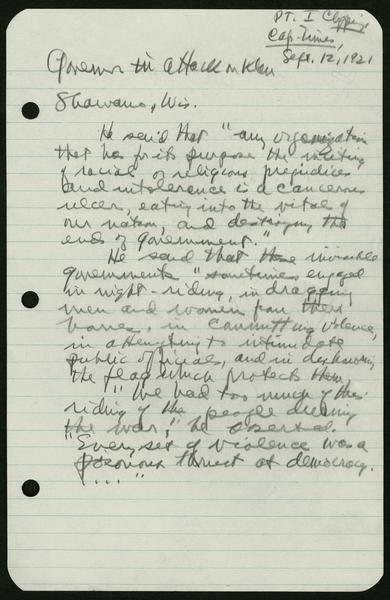 PT. I Clipping
Cap. Times,
Sept. 12, 1921
Governor in attack on Klan
Shawano, Wis.
He said that "any organization
that has for its purpose the inciting
of racial or religious prejudices
and intolerance is a cancerous
ulcer, eating into the vitals of
our nation, and destroying the
ends of government."
He said that these invisible
governments "sometimes engaged
in night-riding, in dragging
men and women from their
homes, in committing violence,
in attempting to intimidate
public officials, and in dishonoring
the flag which protects them.
"We had too much of this
riding of the people during
the war," he asserted.
"Every act of violence was a
poisonous thrust at democracy.
...."